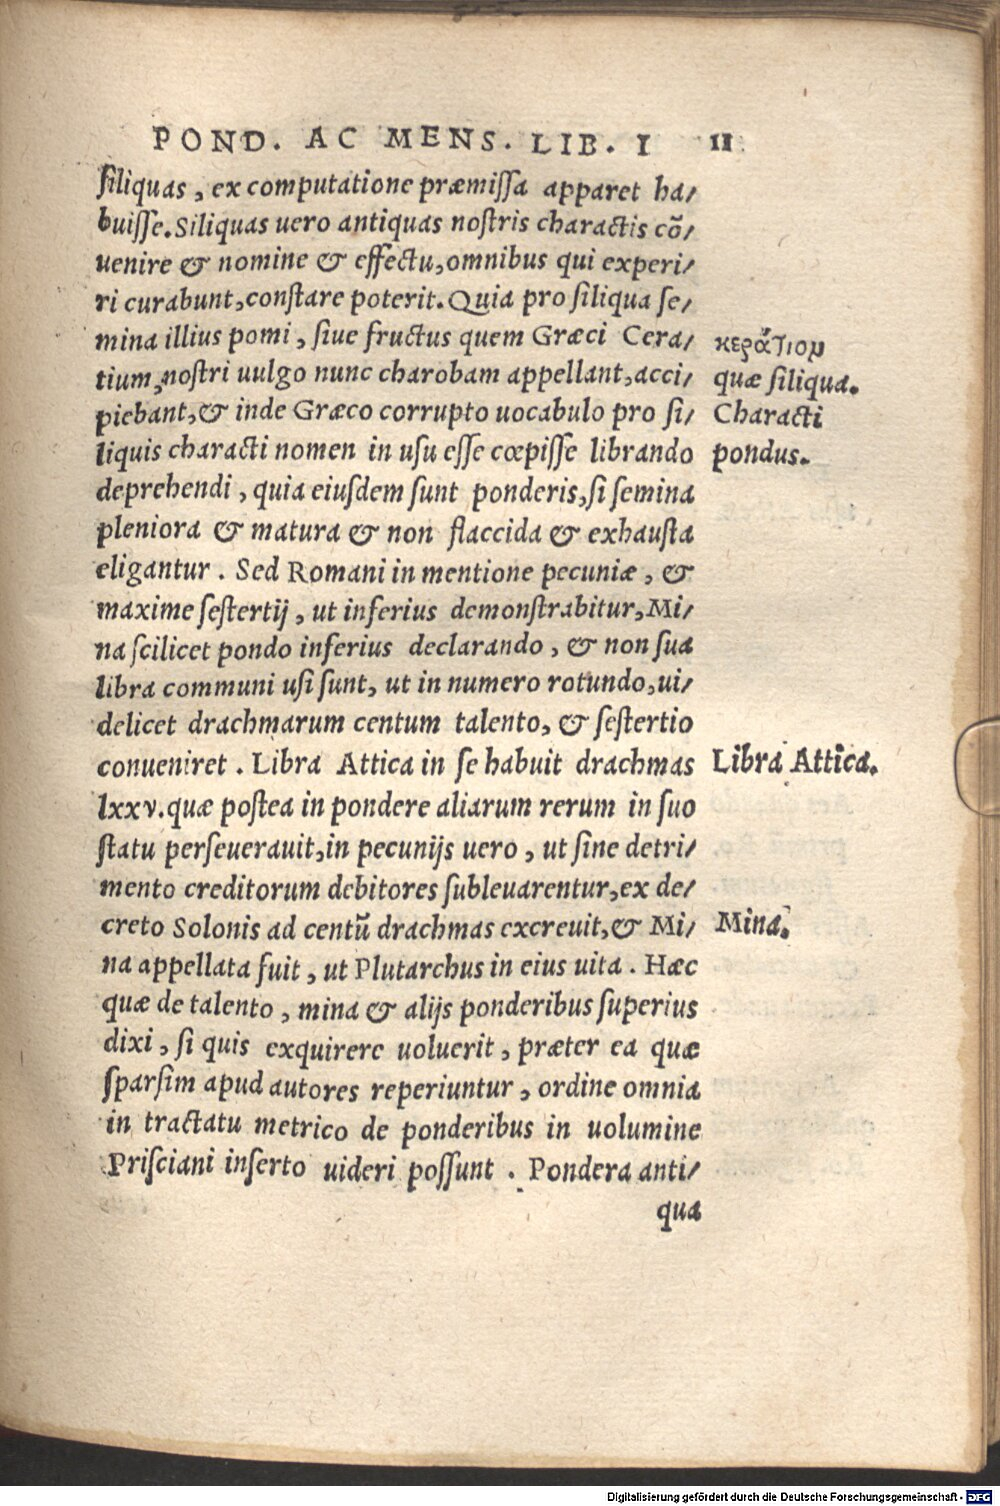 POND. AC MENS. LIB. I 11
siliquas, ex computatione præmissa apparet ha/
buisse. Siliquas uero antiquas nostris charactis cõ/
uenire & nomine & effectu, omnibus qui experi/
ri curabunt, constare poterit. Quia pro siliqua se/
mina illius pomi, siue fructus quem Græci Cera/
tium, nostri uulgo nunc charobam appellant, acci/
piebant, & inde Græco corrupto uocabulo pro si/
liquis characti nomen in usu esse cœpisse librando
deprehendi, quia eiusdem sunt ponderis, si semina
pleniora & matura & non flaccida & exhausta
eligantur. Sed Romani in mentione pecuniæ, &
maxime sestertij, ut inferius demonstrabitur, Mi/
na scilicet pondo inferius declarando, & non sua
libra communi usi sunt, ut in numero rotundo, ui/
delicet drachmarum centum talento, & sestertio
conueniret. Libra Attica in se habuit drachmas
lxxv. quæ postea in pondere aliarum rerum in suo
statu perseuerauit, in pecunijs uero, ut sine detri/
mento creditorum debitores subleuarentur, ex de/
creto Solonis ad centũ drachmas excreuit, & Mi/
na appellata fuit, ut Plutarchus in eius uita. Hæc
quæ de talento, mina & alijs ponderibus superius
dixi, si quis exquirere uoluerit, præter ea quæ
sparsim apud autores reperiuntur, ordine omnia
in tractatu metrico de ponderibus in uolumine
Prisciani inserto uideri possunt. Pondera anti/
qua
κεράτιον
quæ siliqua.
Characti
pondus.
Libra Attica.
Mina.
Digitalisierung gefördert durch die Deutsche Forschungsgemeinschaft - DFG